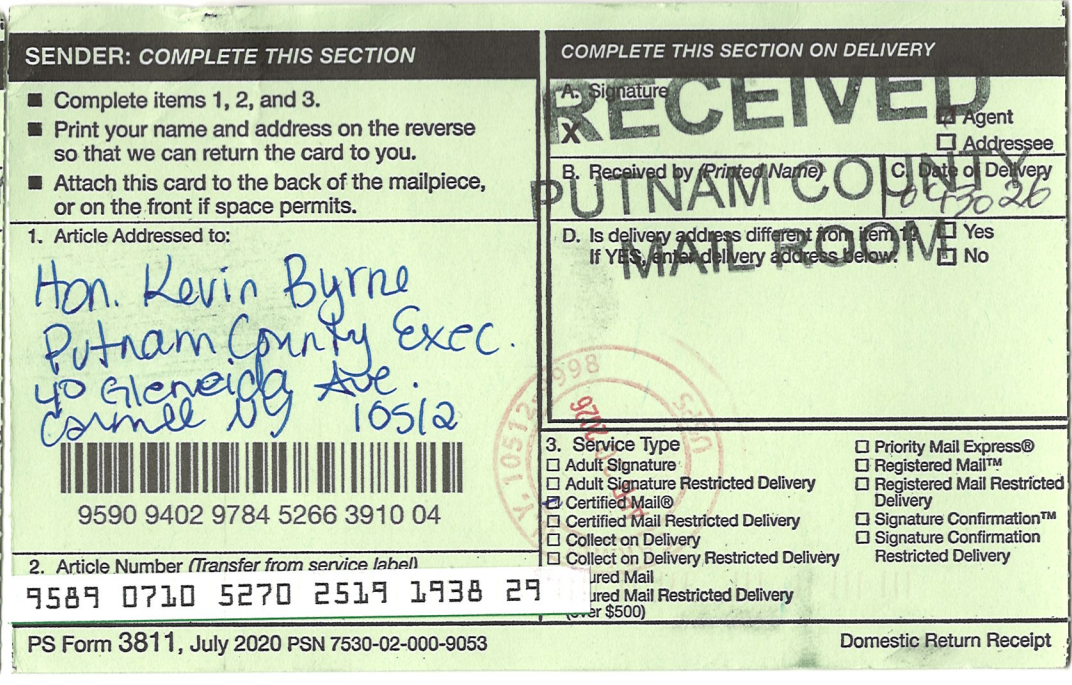 SENDER: COMPLETE THIS SECTION
■ Complete items 1, 2, and 3.
■ Print your name and address on the reverse
so that we can return the card to you.
■ Attach this card to the back of the mailpiece,
or on the front if space permits.
1. Article Addressed to:
Hon. Kevin Byrne
Putnam County Exec.
40 Gleneida Ave.
Carmel NY 10512
9590 9402 9784 5266 3910 04
2. Article Number (Transfer from service label)
9589 0710 5270 2519 1938 29
COMPLETE THIS SECTION ON DELIVERY
A. Signature
X
☐ Agent
☐ Addressee
RECEIVED
B. Received by (Printed Name)
C. Date of Delivery
PUTNAM COUNTY
D. Is delivery address different from item 1? ☐ Yes
If YES, enter delivery address below: ☐ No
MAIL ROOM
3. Service Type
☐ Adult Signature
☐ Adult Signature Restricted Delivery
☑ Certified Mail®
☐ Certified Mail Restricted Delivery
☐ Collect on Delivery
☐ Collect on Delivery Restricted Delivery
ured Mail
ured Mail Restricted Delivery
(over $500)
☐ Priority Mail Express®
☐ Registered Mail™
☐ Registered Mail Restricted
Delivery
☐ Signature Confirmation™
☐ Signature Confirmation
Restricted Delivery
N.Y. 10512-9998
USPS
2026
PS Form 3811, July 2020 PSN 7530-02-000-9053
Domestic Return Receipt